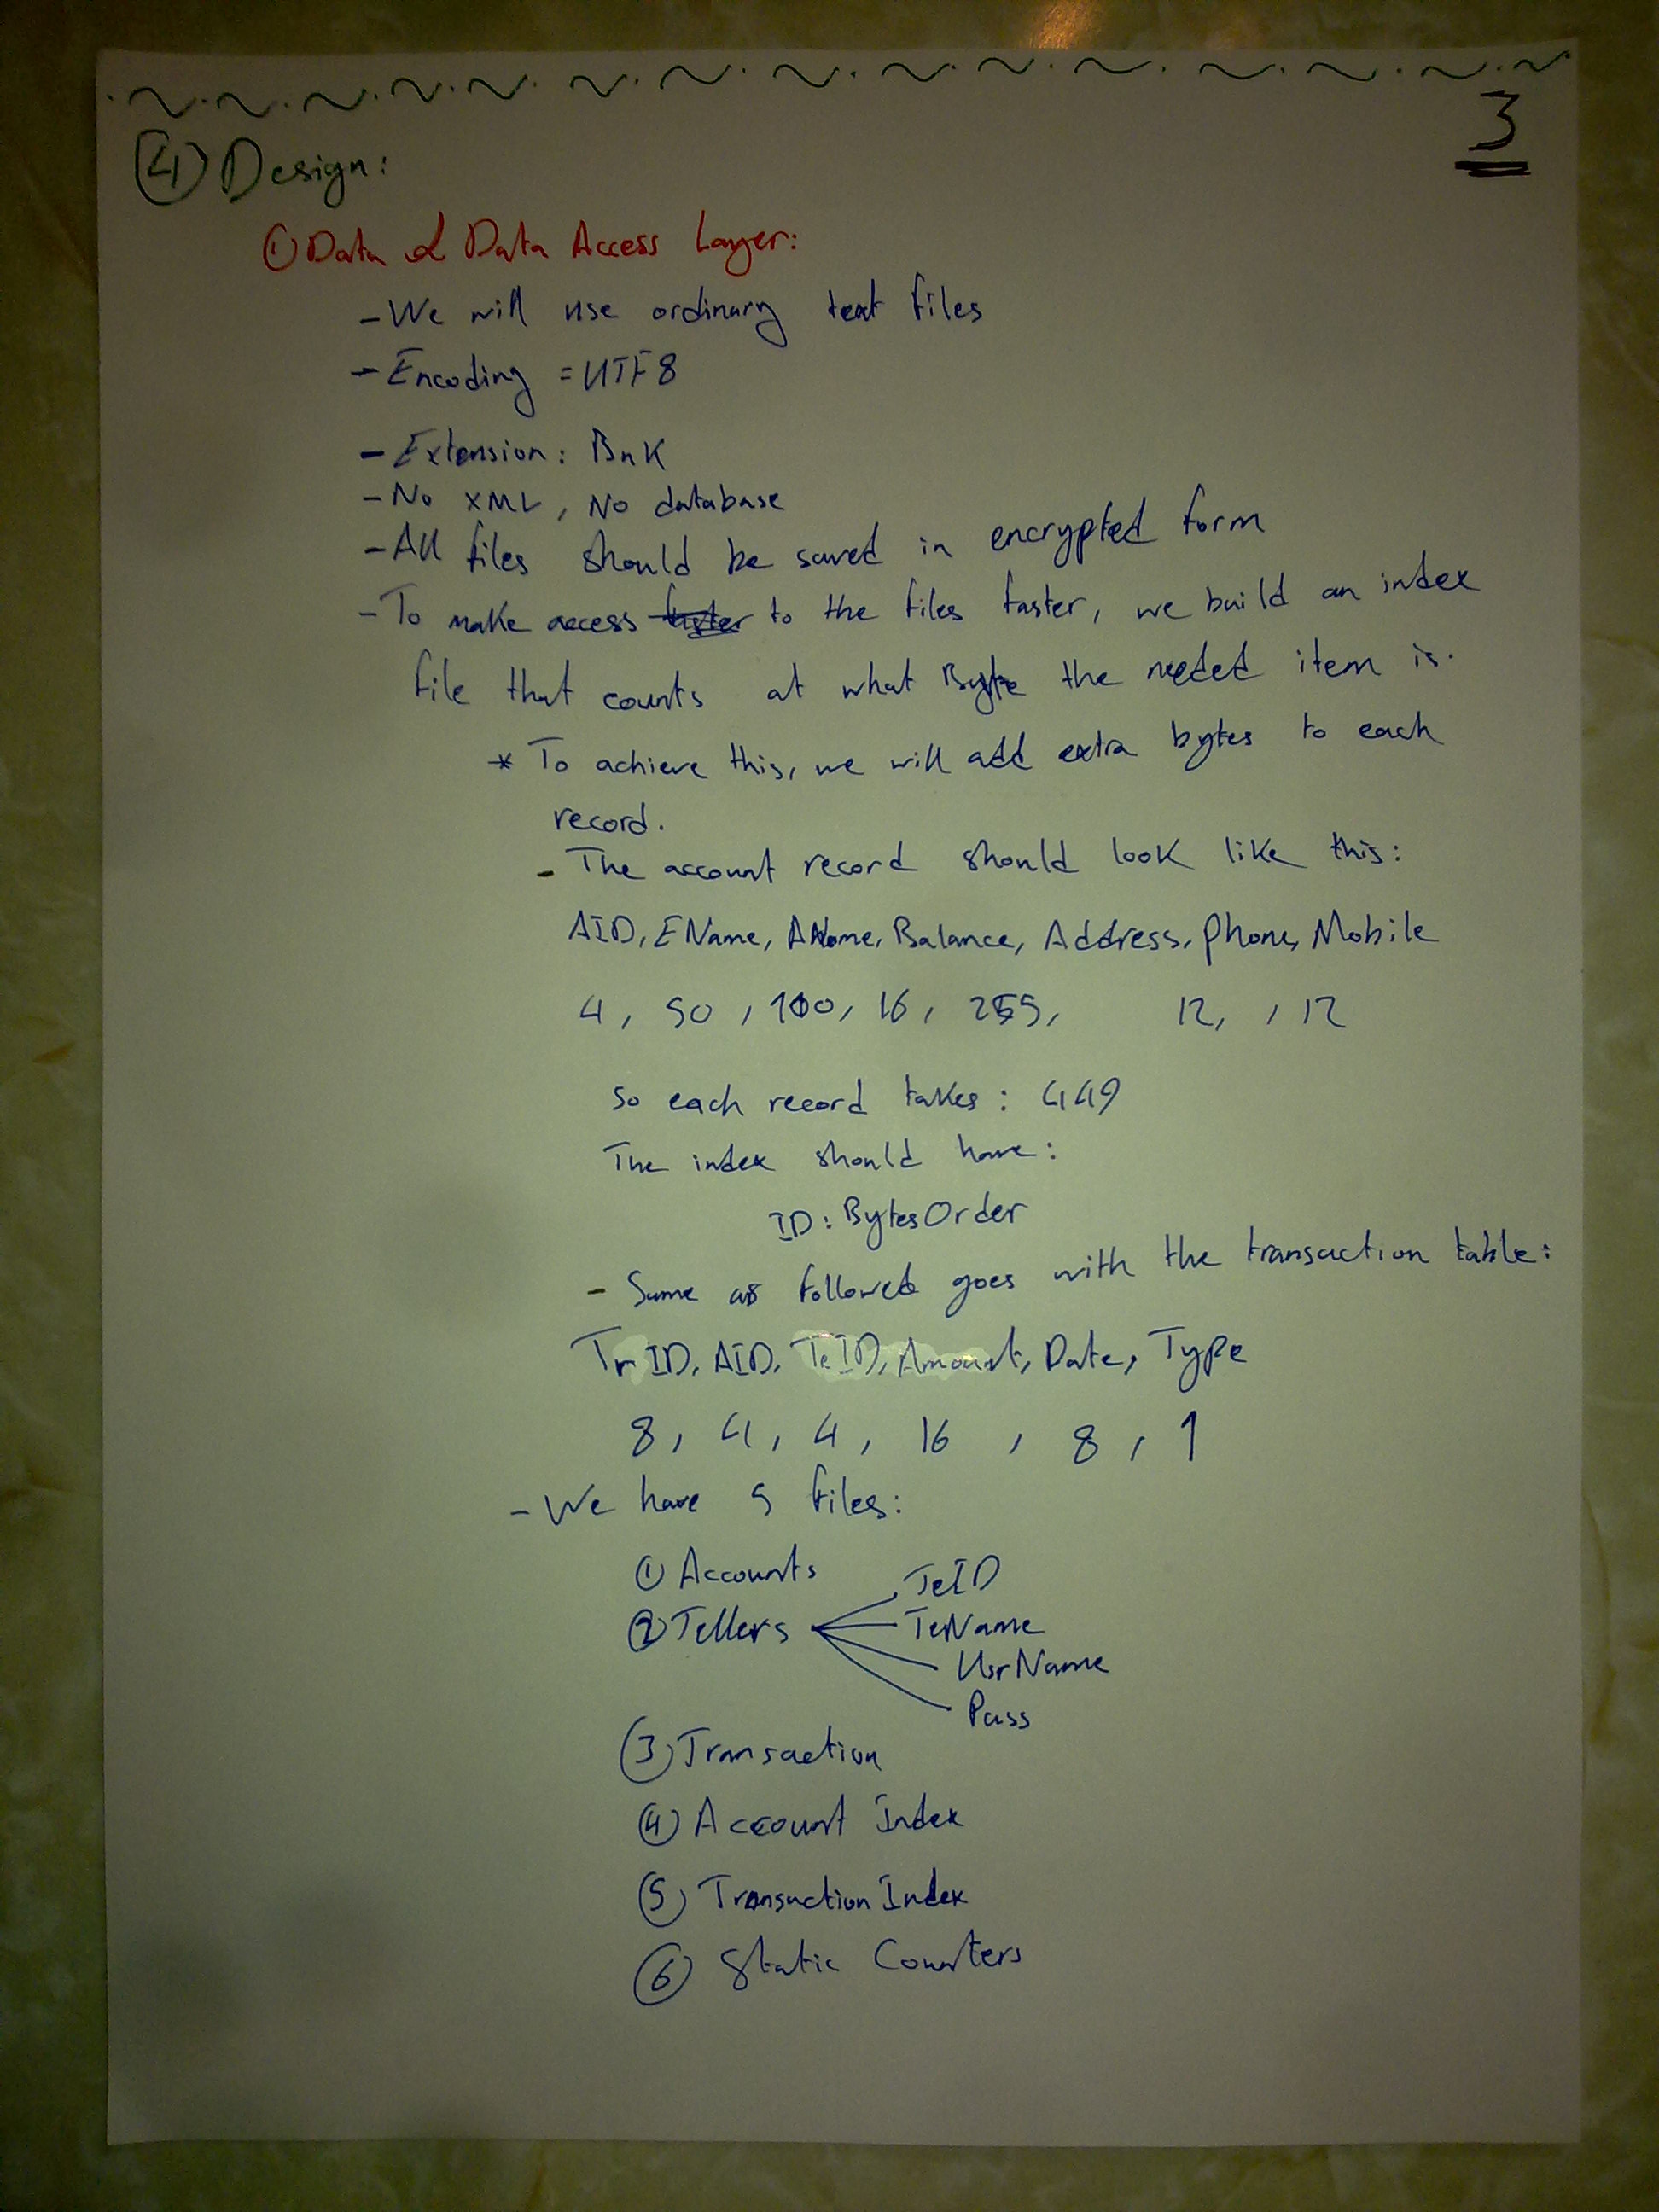 3
④ Design:
① Data & Data Access Layer:
- We will use ordinary text files
- Encoding = UTF8
- Extension: BnK
- No XML, No database
- All files should be saved in encrypted form
- To make access faster to the files faster, we build an index
file that counts at what Byte the needed item is.
* To achieve this, we will add extra bytes to each
record.
- The account record should look like this:
AID, EName, AName, Balance, Address, Phone, Mobile
4, 50, 100, 16, 255, 12, , 12
so each record takes: 449
The index should have:
ID: BytesOrder
- Same as followed goes with the transaction table:
TrID, AID, TeID, Amount, Date, Type
8, 4, 4, 16, 8, 1
- We have 5 files:
① Accounts
② Tellers
TeID
TeName
UsrName
Pass
③ Transaction
④ Account Index
⑤ Transaction Index
⑥ Static Counters